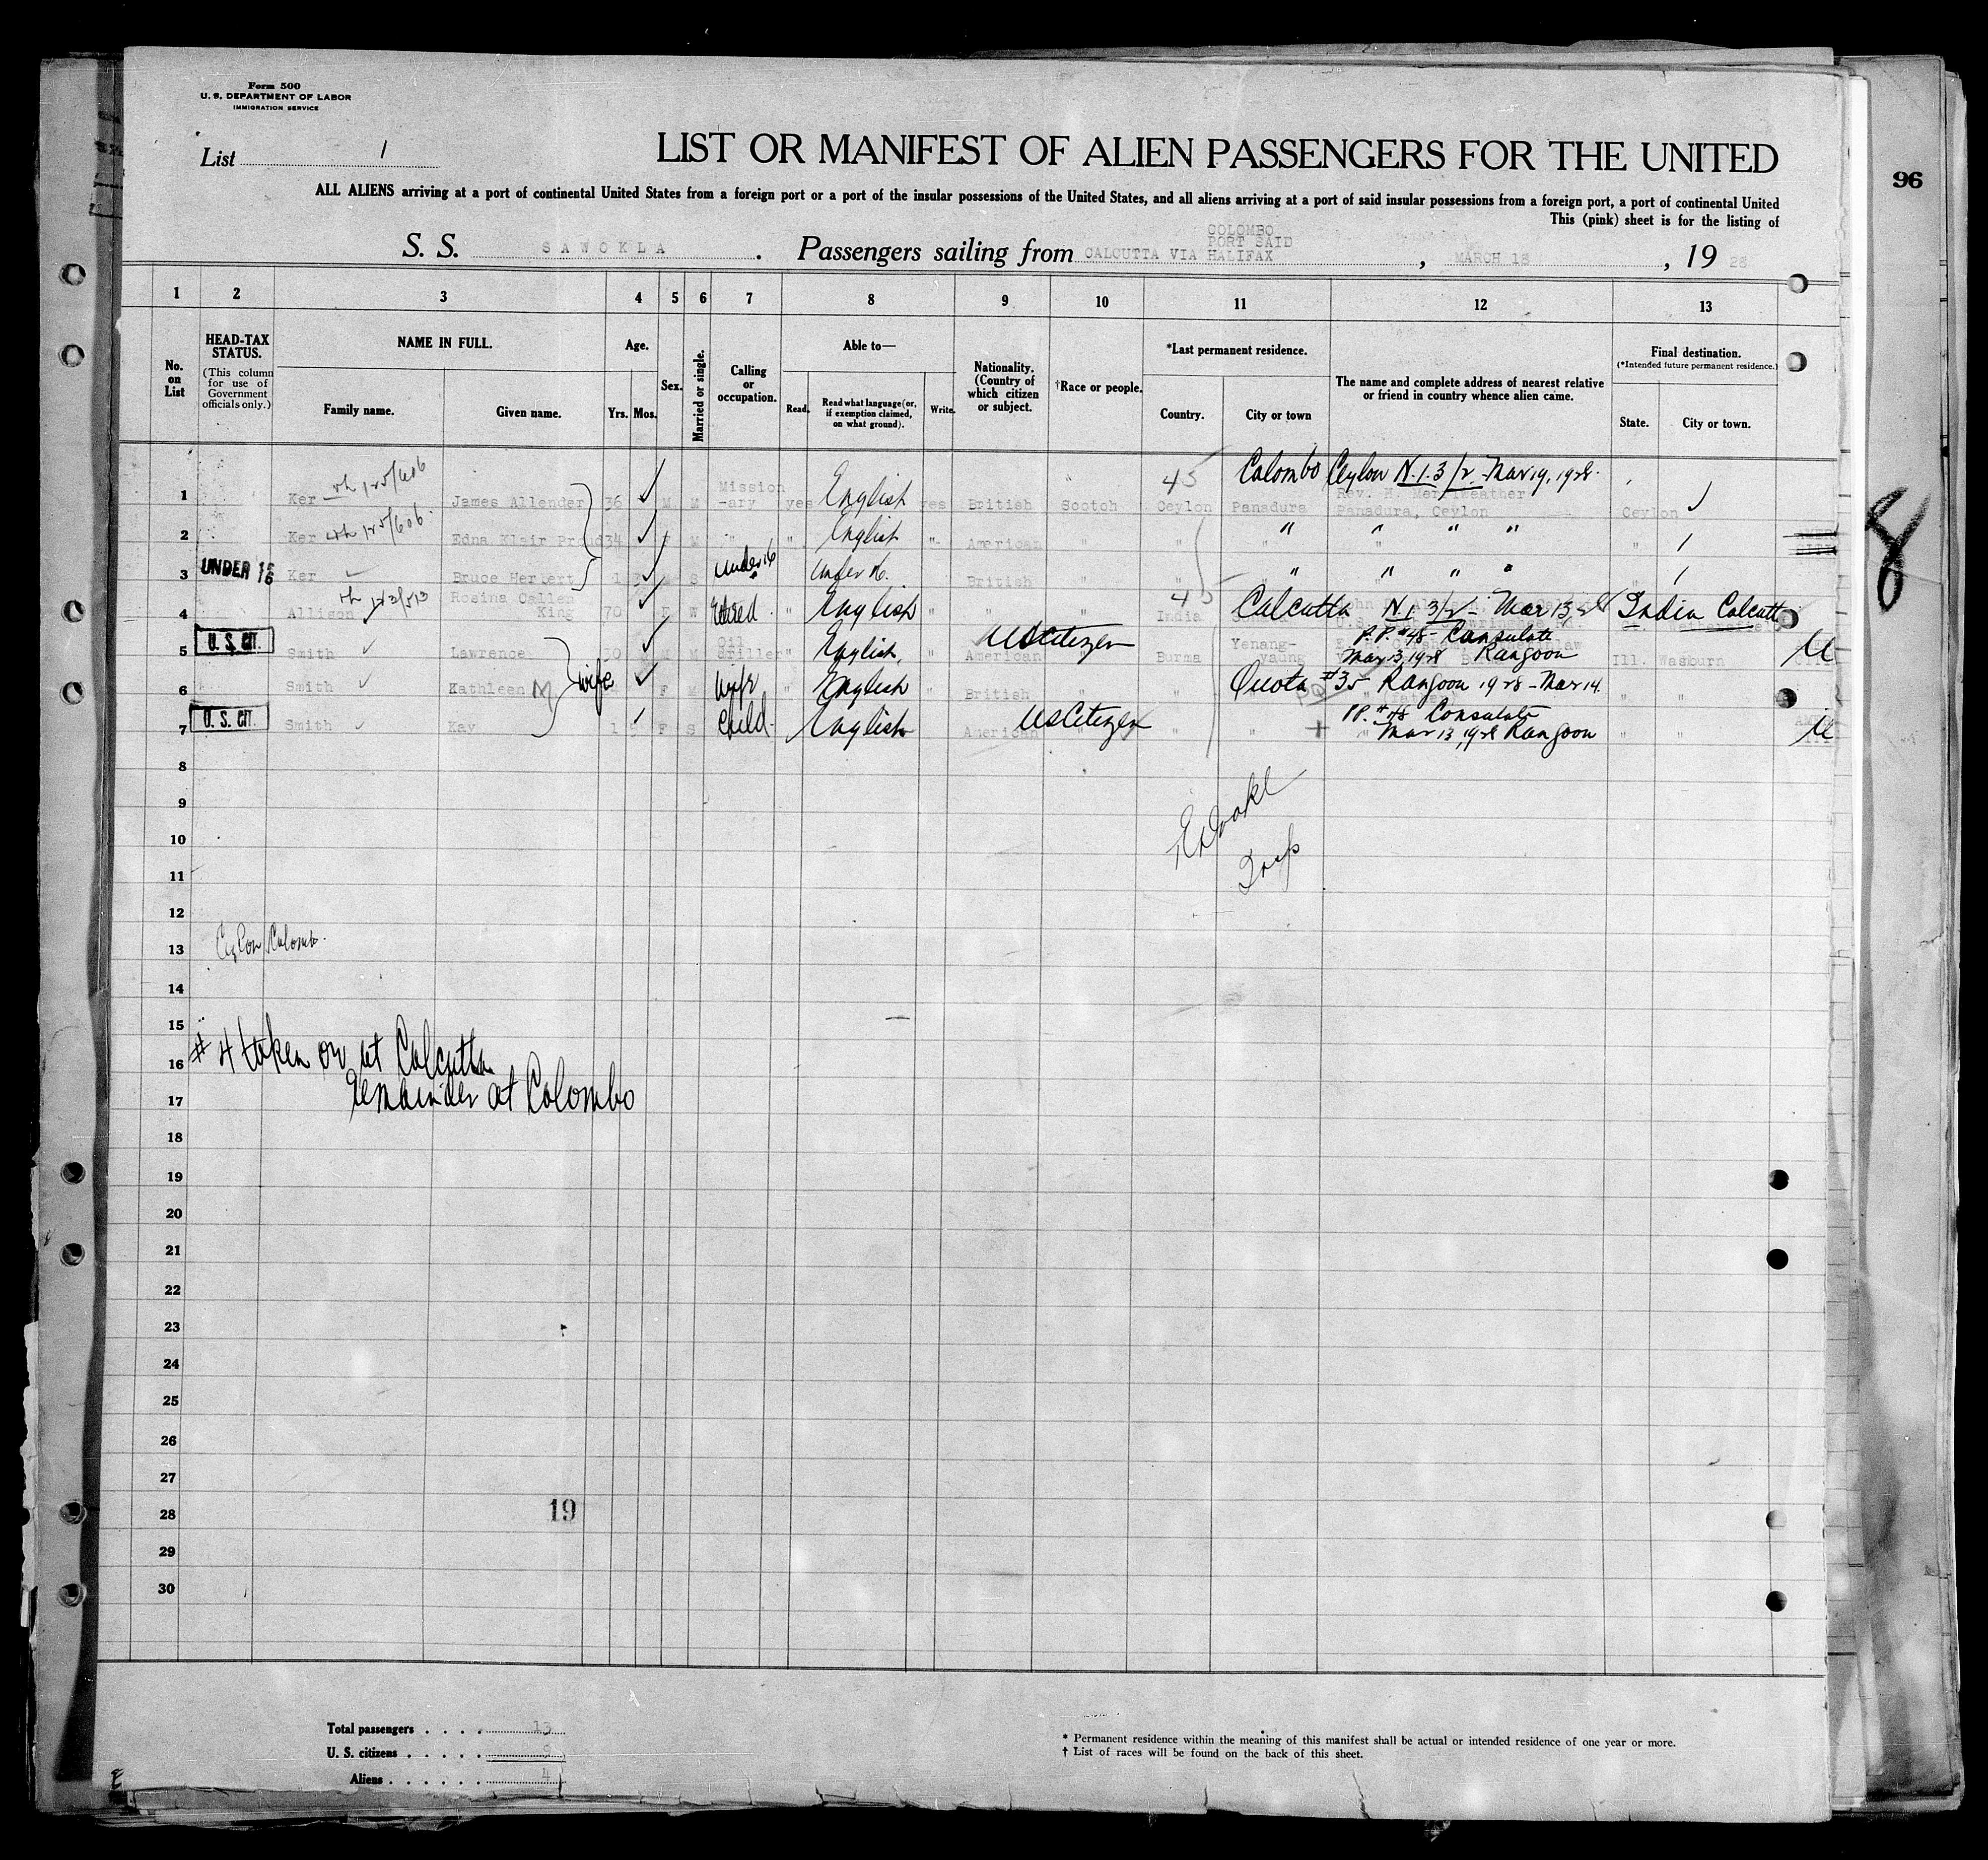 Form 500
U. S. DEPARTMENT OF LABOR
IMMIGRATION SERVICE
List 1
LIST OR MANIFEST OF ALIEN PASSENGERS FOR THE UNITED
96
ALL ALIENS arriving at a port of continental United States from a foreign port or a port of the insular possessions of the United States, and all aliens arriving at a port of said insular possessions from a foreign port, a port of continental United
This (pink) sheet is for the listing of
COLOMBO
PORT SAID
S. S. SAWOKLA. Passengers sailing from CALCUTTA VIA HALIFAX, MARCH 18, 1928
1 2 3 4 5 6 7 8 9 10 11 12 13
No. on List
HEAD-TAX STATUS.
(This column for use of Government officials only.)
NAME IN FULL.
Family name. Given name.
Age.
Yrs. Mos.
Sex.
Married or single.
Calling or occupation.
Able to—
Read. Read what language (or, if exemption claimed, on what ground). Write.
Nationality. (Country of which citizen or subject.
†Race or people.
*Last permanent residence.
Country. City or town
The name and complete address of nearest relative or friend in country whence alien came.
Final destination.
(*Intended future permanent residence.)
State. City or town.
45 Colombo Ceylon N.I. 3/2 - Mar 19, 1928.
1 Ker James Allender 36 M M Mission-ary yes English yes British Scotch Ceylon Panadura Rev. H. Meriweather Panadura, Ceylon Ceylon
2 Ker Edna Klair Proud 34 F M " " English " American " " " " " " "
UNDER 16
3 Ker Bruce Herbert 1 3 M S under 16 under 16. British " " " " " "
4 Allison Rosina Callen King 70 F W " English " " " India Calcutta N.I. 3/2 - Mar 13 28 India Calcutta
45
U. S. CIT.
5 Smith Lawrence 30 M M Oil Driller " English " American US Citizen Burma Yenang-yaung P.P. #48 - Consulate Mar 13, 1928 Rangoon Ill. Wasburn
6 Smith Kathleen M wife F M wife " English " British " " Quota #35 Rangoon 1928 - Mar 14. " "
U. S. CIT.
7 Smith Kay 1 F S child. English American US Citizen " " PP. #48 Consulate Mar 13, 1928 Rangoon " "
8
8
9
10
11
Insp
12
13 Ceylon Colombo.
14
15
16 #4 taken on at Calcutta
17 remainder at Colombo
18
19
20
21
22
23
24
25
26
27
28 19
29
30
Total passengers . . . . 13
U. S. citizens . . . . . 9
Aliens . . . . . . 4
* Permanent residence within the meaning of this manifest shall be actual or intended residence of one year or more.
† List of races will be found on the back of this sheet.